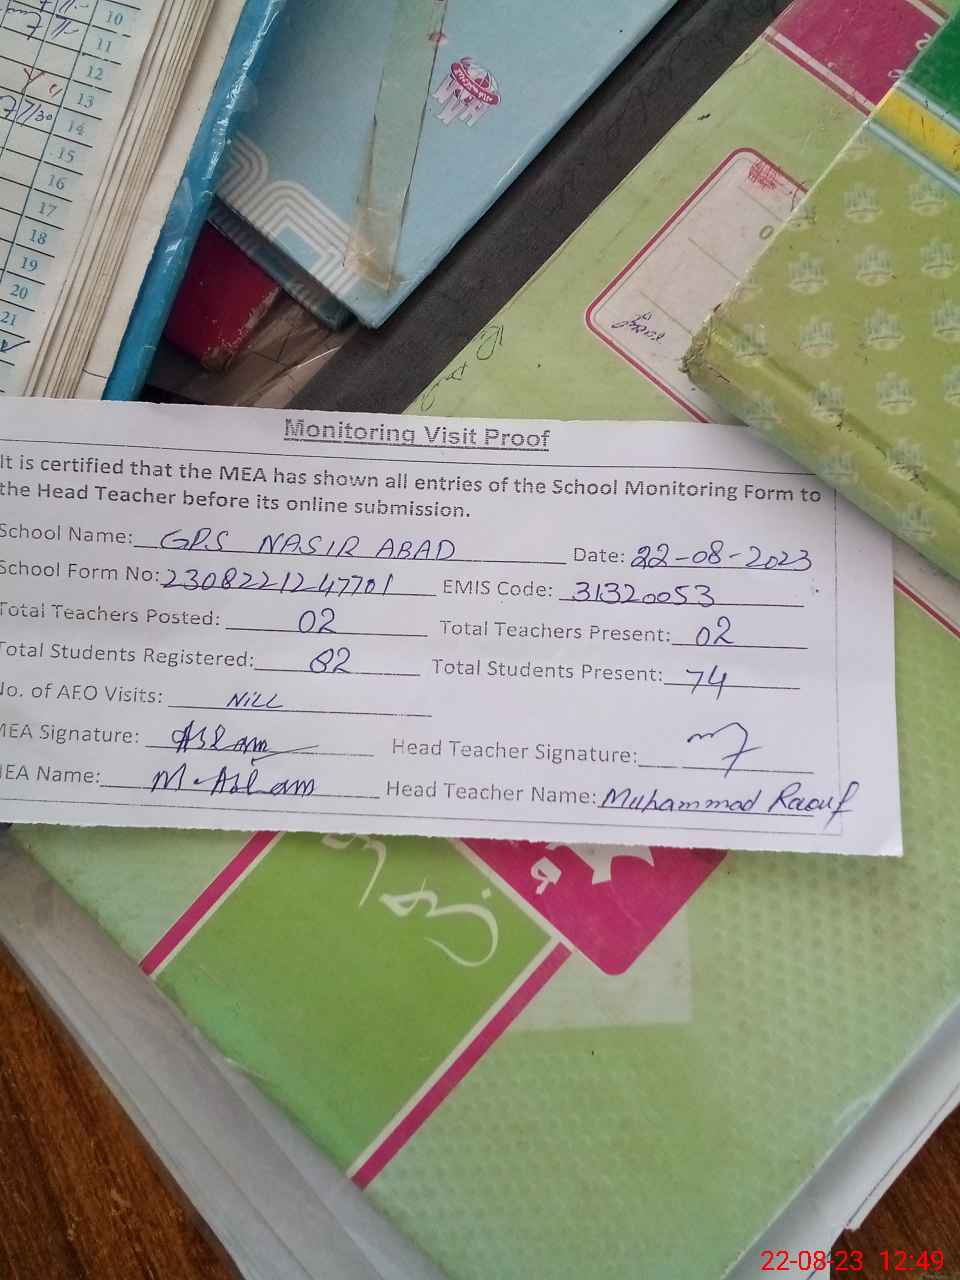 10
11
12
13
14
15
16
17
18
19
20
21
Monitoring Visit Proof
It is certified that the MEA has shown all entries of the School Monitoring Form to
the Head Teacher before its online submission.
School Name: GPS NASIR ABAD Date: 22-08-2023
School Form No: 2308221247701 EMIS Code: 31320053
Total Teachers Posted: 02 Total Teachers Present: 02
Total Students Registered: 82 Total Students Present: 74
No. of AEO Visits: NILL
MEA Signature: Aslam Head Teacher Signature:
MEA Name: M-Aslam Head Teacher Name: Muhammad Raouf
22-08-23 12:49